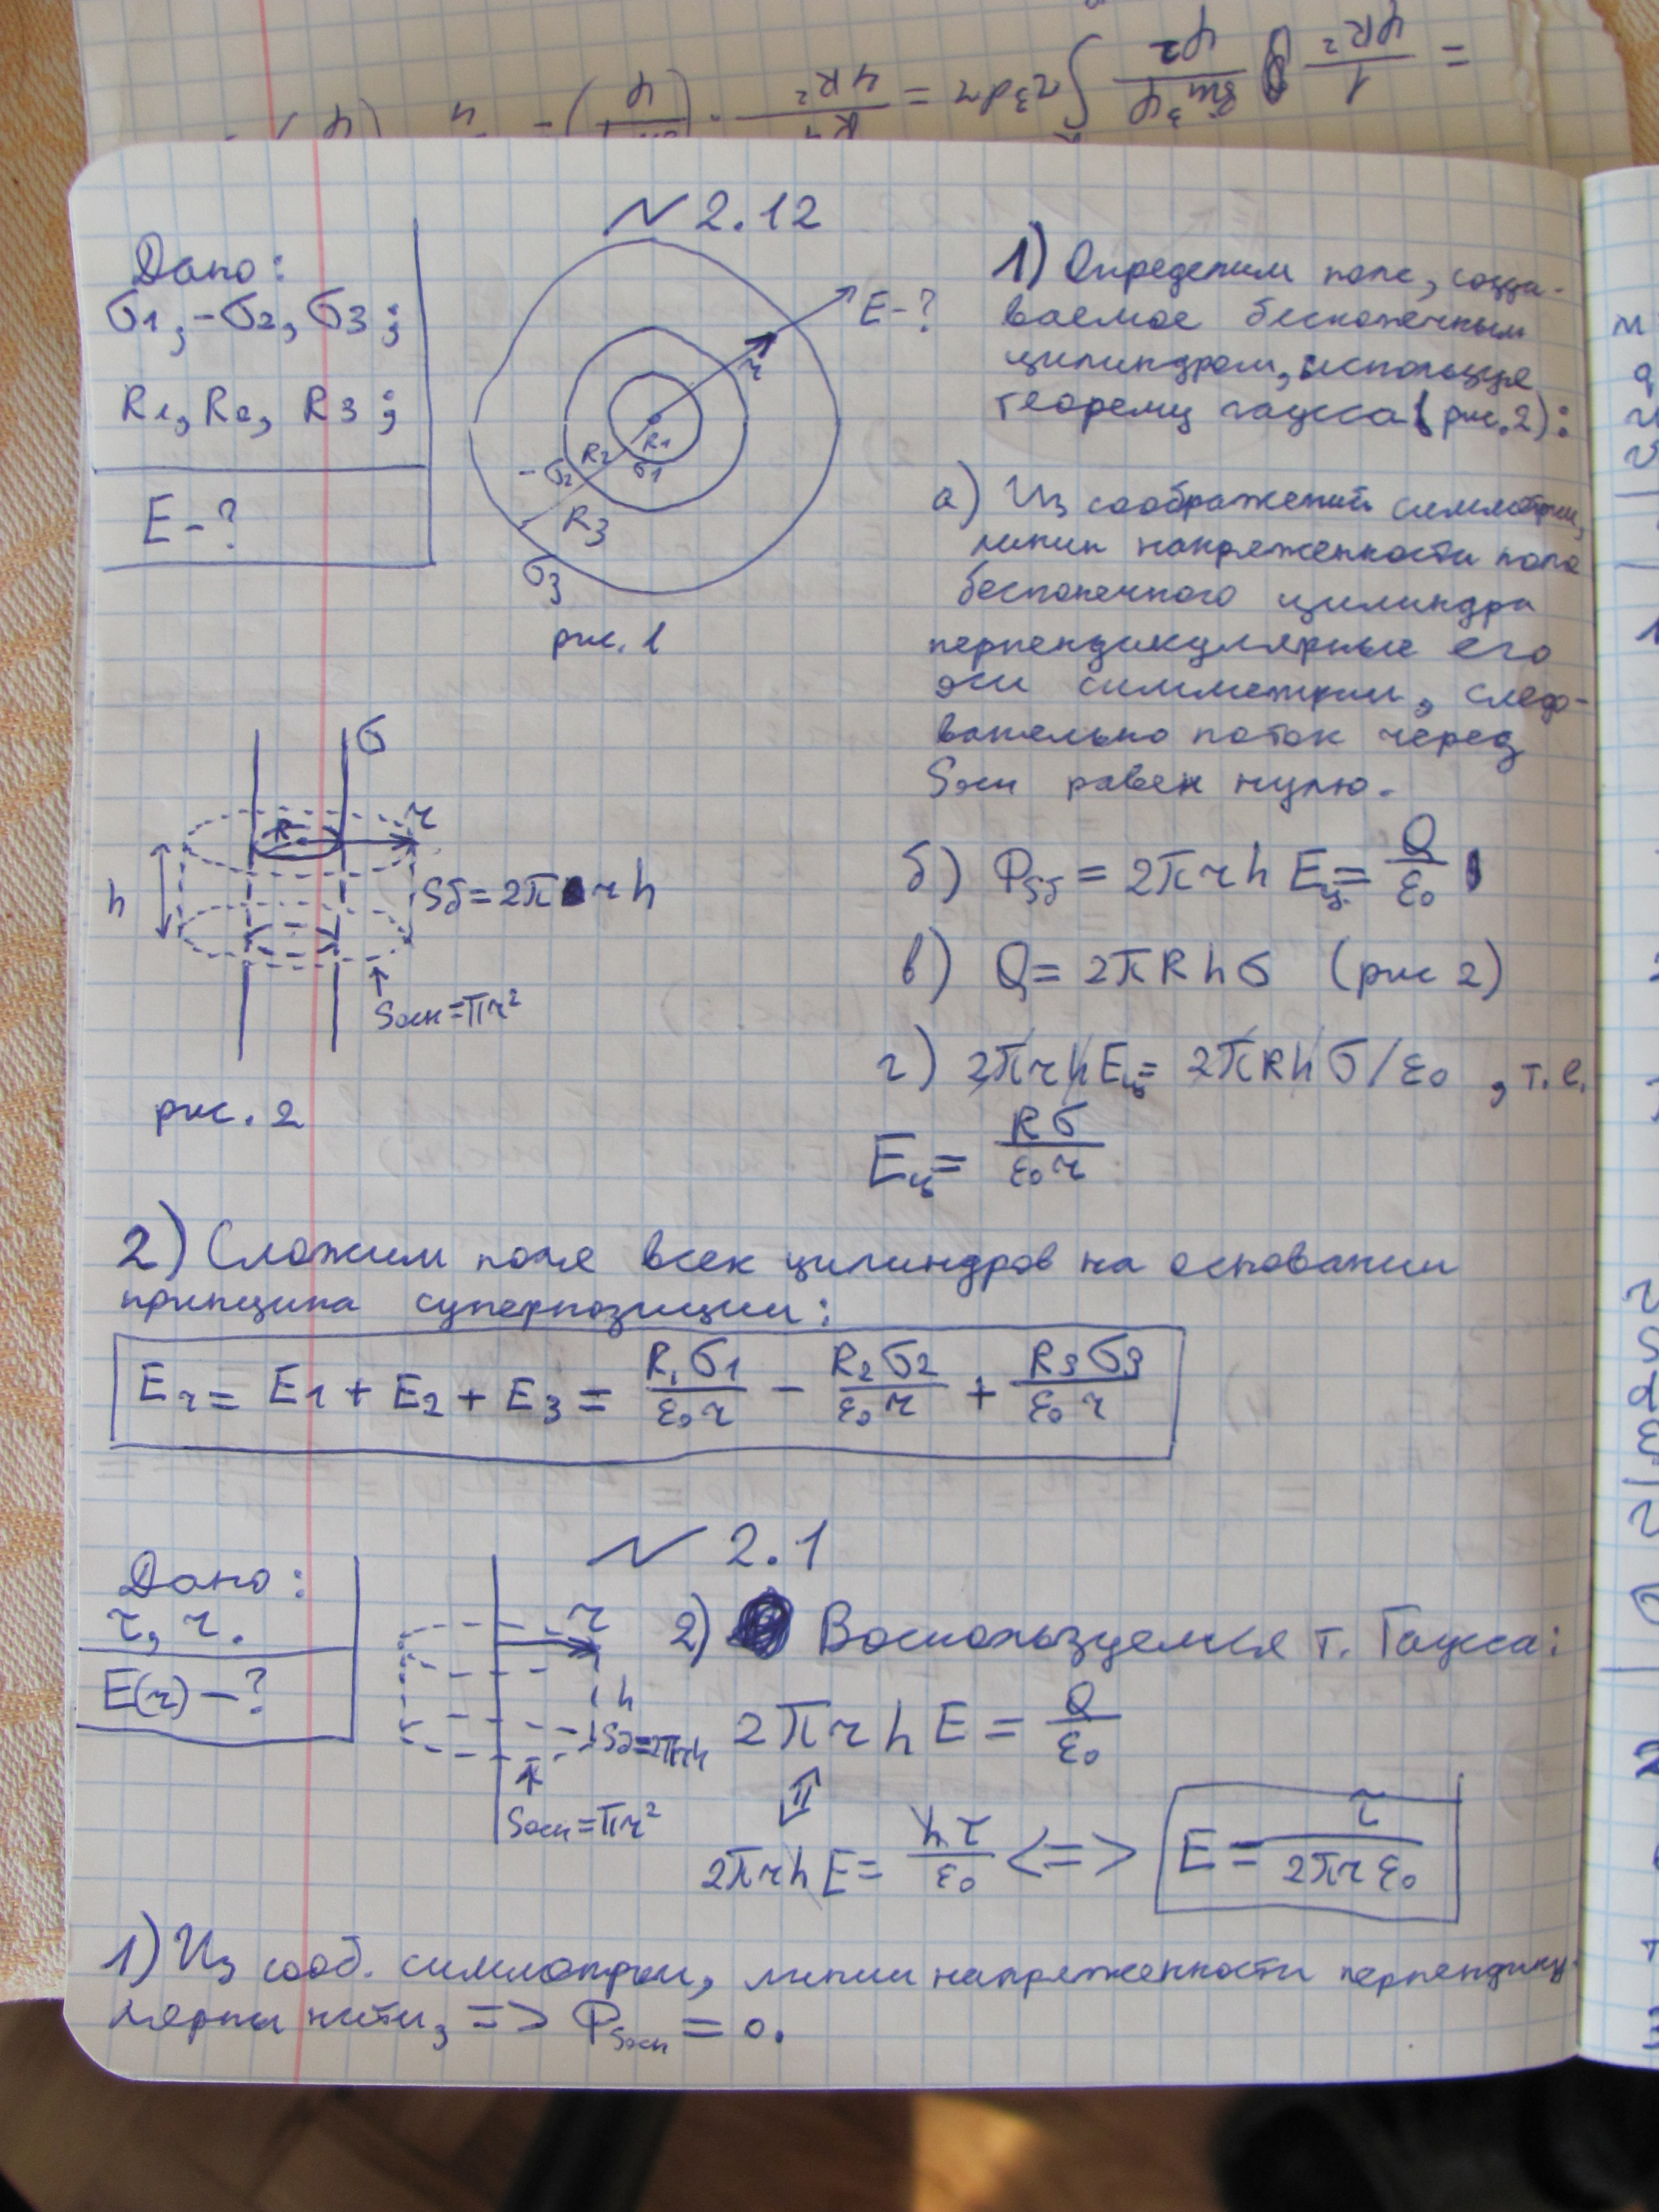 = 1/(4R²) sin³φ/φ² ∫ r³dr = R⁴/(4R²)
N 2.12
Дано:
σ1, -σ2, σ3;
R1, R2, R3;
E-?
E-?
r
R1
R2
σ1
-σ2
R3
σ3
рис. 1
1) Определим поле, созда-
ваемое бесконечным
цилиндром, используя
теорему гаусса (рис. 2):
а) Из соображений симметрии,
линии напряженности поля
бесконечного цилиндра
перпендикулярные его
оси симметрии, следо-
вательно поток через
Sосн равен нулю.
σ
R
r
h
Sб = 2π r h
Sосн = πr²
рис. 2
б) ΦSб = 2πrh Eц = Q/ε0
в) Q = 2πRhσ (рис 2)
г) 2πrhEц = 2πRhσ/ε0, т.е.
Eц = Rσ/(ε0r)
2) Сложим поля всех цилиндров на основании
принципа суперпозиции:
Er = E1 + E2 + E3 = R1σ1/(ε0r) - R2σ2/(ε0r) + R3σ3/(ε0r)
N 2.1
Дано:
τ, r.
E(r) - ?
r
h
Sб=2πrh
Sосн = πr²
2) Воспользуемся т. Гаусса:
2πrhE = Q/ε0
⇕
2πrhE = hτ/ε0 <=> E = τ/(2πrε0)
1) Из сооб. симметрии, линии напряженности перпендику-
лярны нити, => ΦSосн = 0.